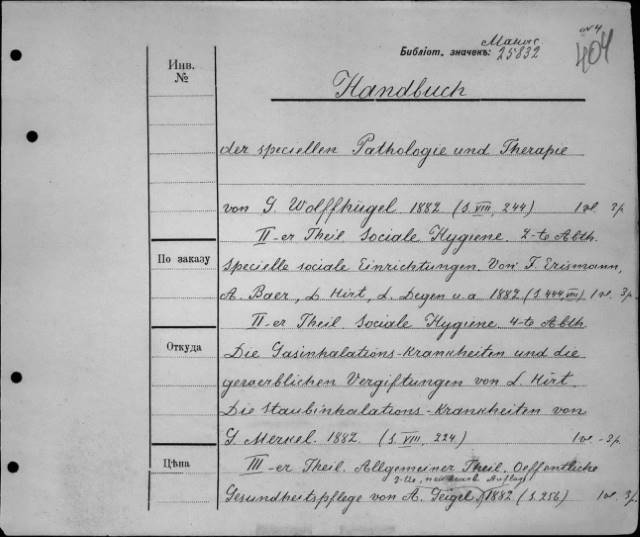 Инв.
№
Библіот. значекъ: 25832
404
Handbuch
der speciellen Pathologie und Therapie
von G. Wolffhügel 1882 (S. VIII, 244) 1 vl. 2p.
II-er Theil. Sociale Hygiene. 2-te Abth.
По заказу
Specielle sociale Einrichtungen. Von F. Erismann,
A. Baer, L. Hirt, L. Degen u. a 1882. (S. 444, VIII) 1 vl. 3p.
II-er Theil. Sociale Hygiene. 4-te Abth
Откуда
Die Gasinhalations-Krankheiten und die
gewerblichen Vergiftungen von L. Hirt.
Die Staubinhalations-Krankheiten von
G. Merkel. 1882. (S. VIII, 224) 1 vl. - 2p.
Цѣна
III-er Theil. Allgemeiner Theil. Oeffentliche
2-te, Auflage
Gesundheitspflege von A. Geigel. 1882 (S. 256) 1 vl. 3p.